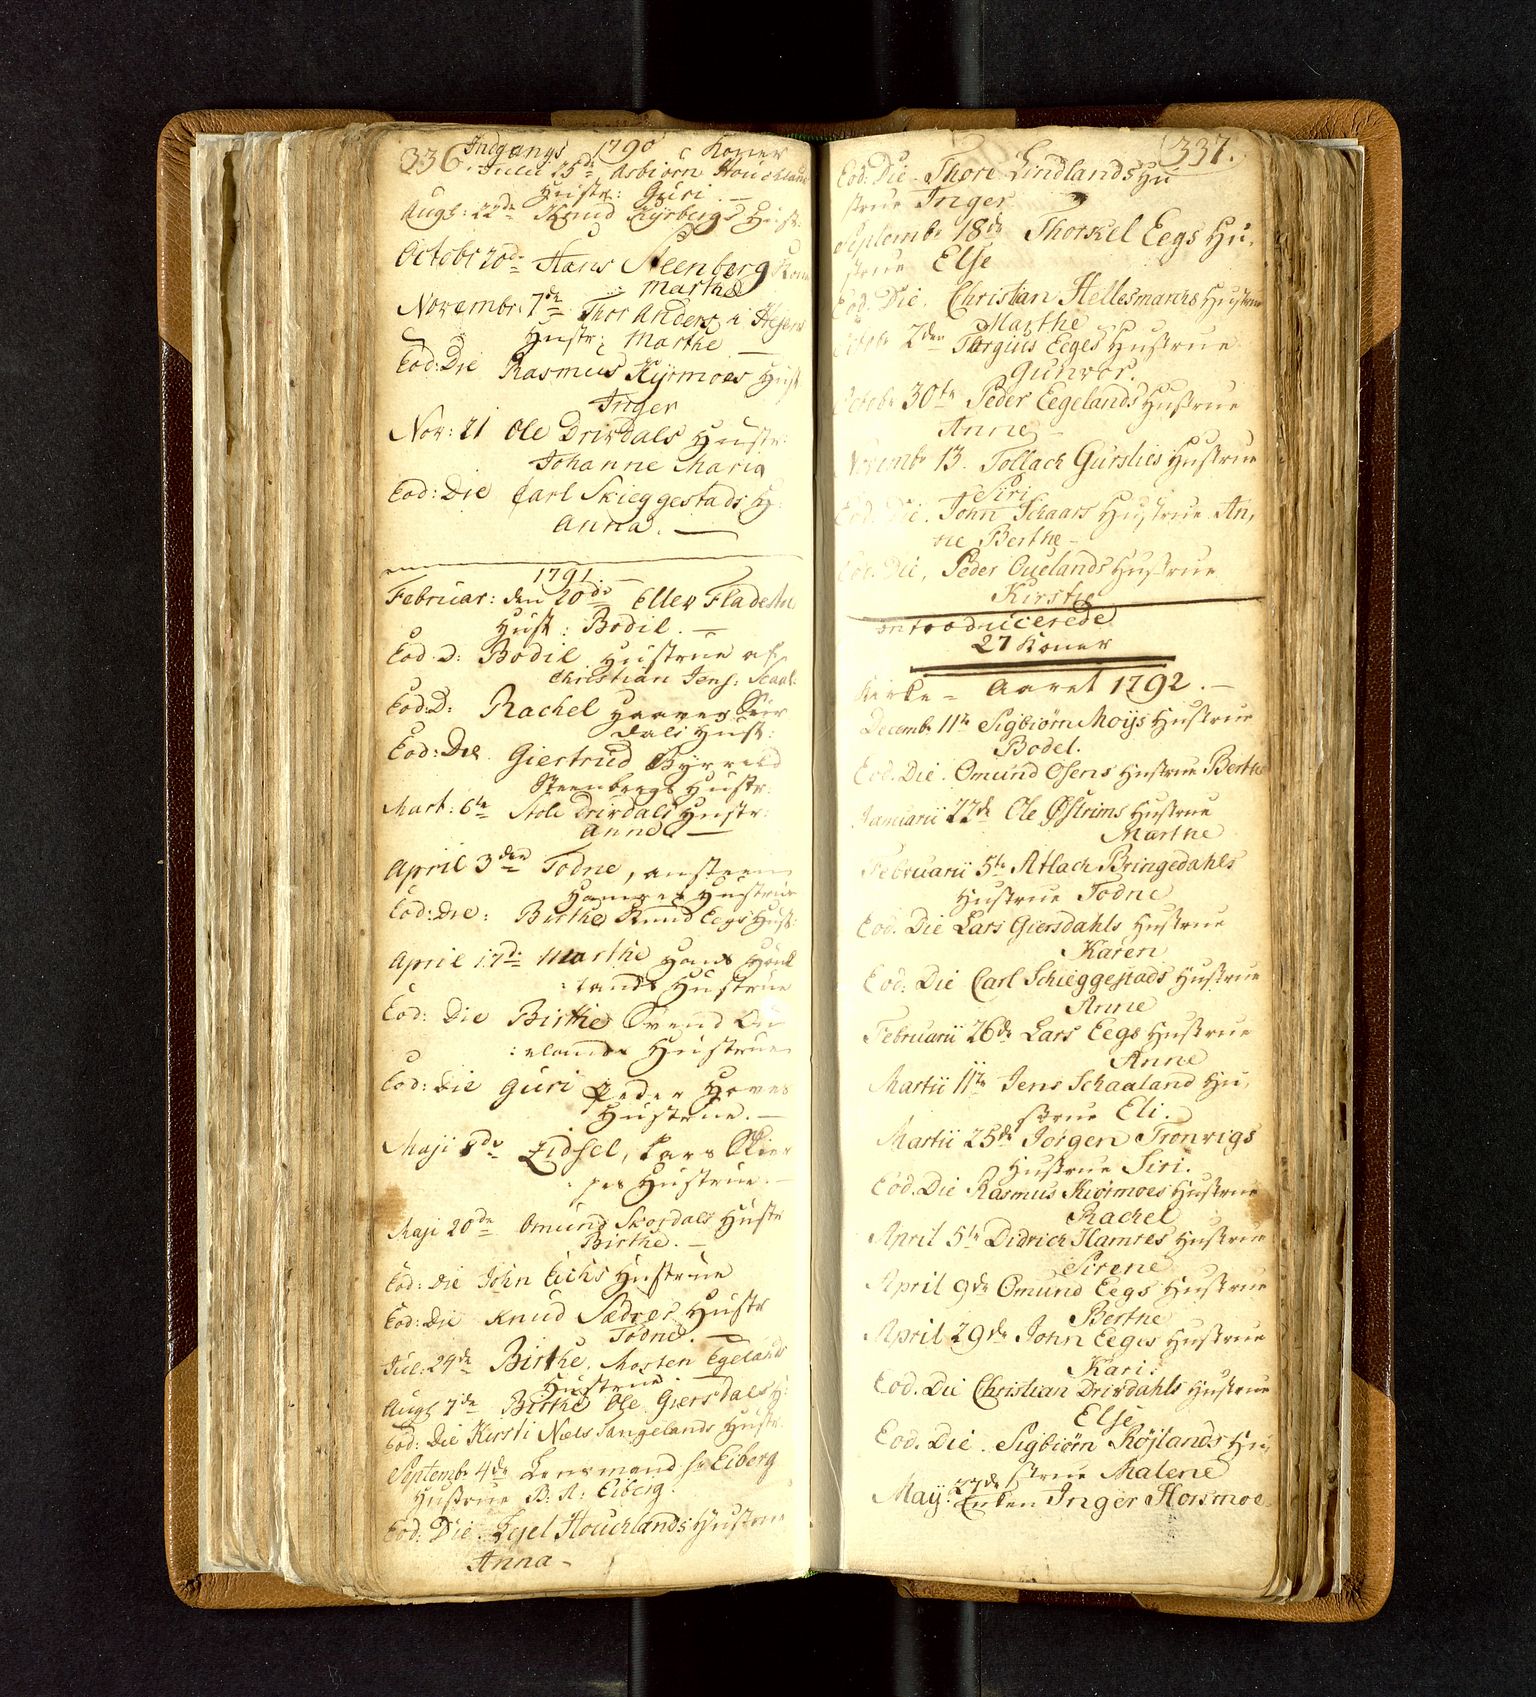 336. Indgangs 1790 Koner
Julii 25de Asbiørn Houckland
Hustr: Guri. —
Augs: 22de Knud Kysbergs Hust.
Octobr 20de Hans Steenberg Kone
: Marthe
Novembr: 7de Thor Anders
Hustr: Marthe —
Eod: Die Rasmus Kyrmoes Hust
Inger
Nov: 21 Ole Drivdals Hustr:
Johanne Maria
Eod: Die Carl Skieggestads H:
Anna. —
1791. —
Februar: den 20de Eller
Hust: Bodil. —
Eod. D: Bodil Hustrue af
Christian Jens:
Eod: D: Rachel
dals Hust:
Eod: Die Giertrud
Steenbergs Hustr:
Mart: 6te Stole Drivdals Hustr:
Anne —
April 3den Todne,
Hamres Hustrue
Eod: Die: Birthe Knud Eegs Hust:
April 17de Marthe Hans Houk
: lands Hustrue
Eod: Die Birthe Svend Ou
: elands Hustrue
Eod: Die Guri Peder Hoves
Hustrue. —
Maji 8de Zidsel, Lars Skier
: pes Hustrue. —
Maji 20de Omund Skogdals Hustr
Birthe. —
Eod: Die John Eichs Hustrue
Eod: Die Knud Sædres Hustr
Todne. —
Jul: 24de Birthe, Morten Egelands
Hustrue. —
Augs 7de Birthe Ole Giersdals H:
Eod: Die Kirsti Niels Sangelands Hustr.
Septembr 4de Lensmand Sr Eiberg
Hustrue B: A: Eiberg.
Eod: Die. Zejel Houcklands Hustrue
Anna —
337.
Eod: Die. Thore Lindlands Hu
strue Inger.
Septembr 18de Thorkel Eegs Hu,
strue Else
Eod. Die. Christian Hellesmarks Hustrue
Marthe
Octobr 2den Torgiuus Eeges Hustrue
Gunvor.
Octobr 30te Peder Eegelands Hustrue
Anne —
Novembr 13. Tollach Gurslies Hustrue
Siri
Eod. Die. John Schaars Hustrue An,
ne Berthe —
Eod: Die, Peder Ouelands Hustrue
Kirstie
introducerede
27 Koner
Kirke = Aaret 1792. —
Decembr 11te Sigbiørn Moijs Hustrue
Bodel.
Eod. Die. Omund Osens Hustrue Berthe
Januarii 22de Ole Østrims Hustrue
Marthe
Februarii 5te Atlach Bringedahls
Hustrue Todne
Eod. Die Lars Giersdahls Hustrue
Karen
Eod: Die Carl Schieggestads Hustrue
Anne
Februarii 26de Lars Eegs Hustrue
Anne
Martii 11te Jens Schaaland Hu,
strue Eli.
Martii 25de Jørgen Tronvigs
Hustrue Siri.
Eod. Die Rasmus Kiørmoes Hustrue
Rachel
April 5te Didrich Hamres Hustrue
Sirene
April 9de Omund Eegs Hustrue
Berthe
April 29de John Eeges Hustrue
Kari:
Eod. Die Christian Drivdahls Hustrue
Else
Eod. Die. Sigbiørn Røjlands Hu,
strue Malene
Maij 27de Enken Inger Horsmoe